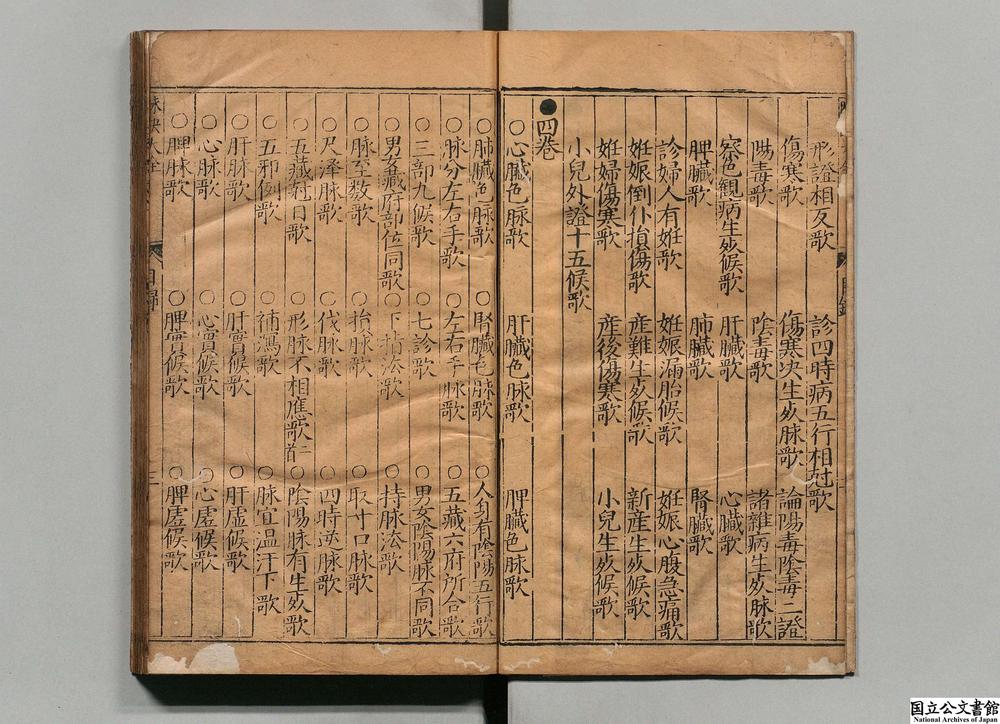 形證相反歌 診四時病五行相尅歌
傷寒歌 傷寒决生死脉歌 論陽毒陰毒二證
陽毒歌 陰毒歌 諸雜病生死脉歌
察色觀病生死候歌 肝臟歌 心臟歌
脾臟歌 肺臟歌 腎臟歌
診婦人有姙歌 姙娠漏胎候歌 姙娠心腹急痛歌
姙娠倒仆損傷歌 產難生死候歌 新產生死候歌
姙婦傷寒歌 產後傷寒歌 小兒生死候歌
小兒外證十五候歌
●四卷
○心臟色脉歌 肝臟色脉歌 脾臟色脉歌
○肺臟色脉歌 ○腎臟色脉歌 ○人身有陰陽五行歌
○脉分左右手歌 ○左右手脉歌 ○五藏六府所合歌
○三部九候歌 ○七診歌 ○男女陰陽脉不同歌
○男女藏府部位同歌 ○下指法歌 ○持脉法歌
○脉至数歌 ○指脉歌 ○取寸口脉歌
○尺澤脉歌 ○伐脉歌 ○四時逆脉歌
○五藏尅日歌 ○形脉不相應歌 ○陰陽脉有生死歌
○五邪倒歌 ○補瀉歌 ○脉宜温汗下歌
○肝脉歌 ○肝實候歌 ○肝虛候歌
○心脉歌 ○心實候歌 ○心虛候歌
○脾脉歌 ○脾實候歌 ○脾虛候歌
国立公文書館
National Archives of Japan